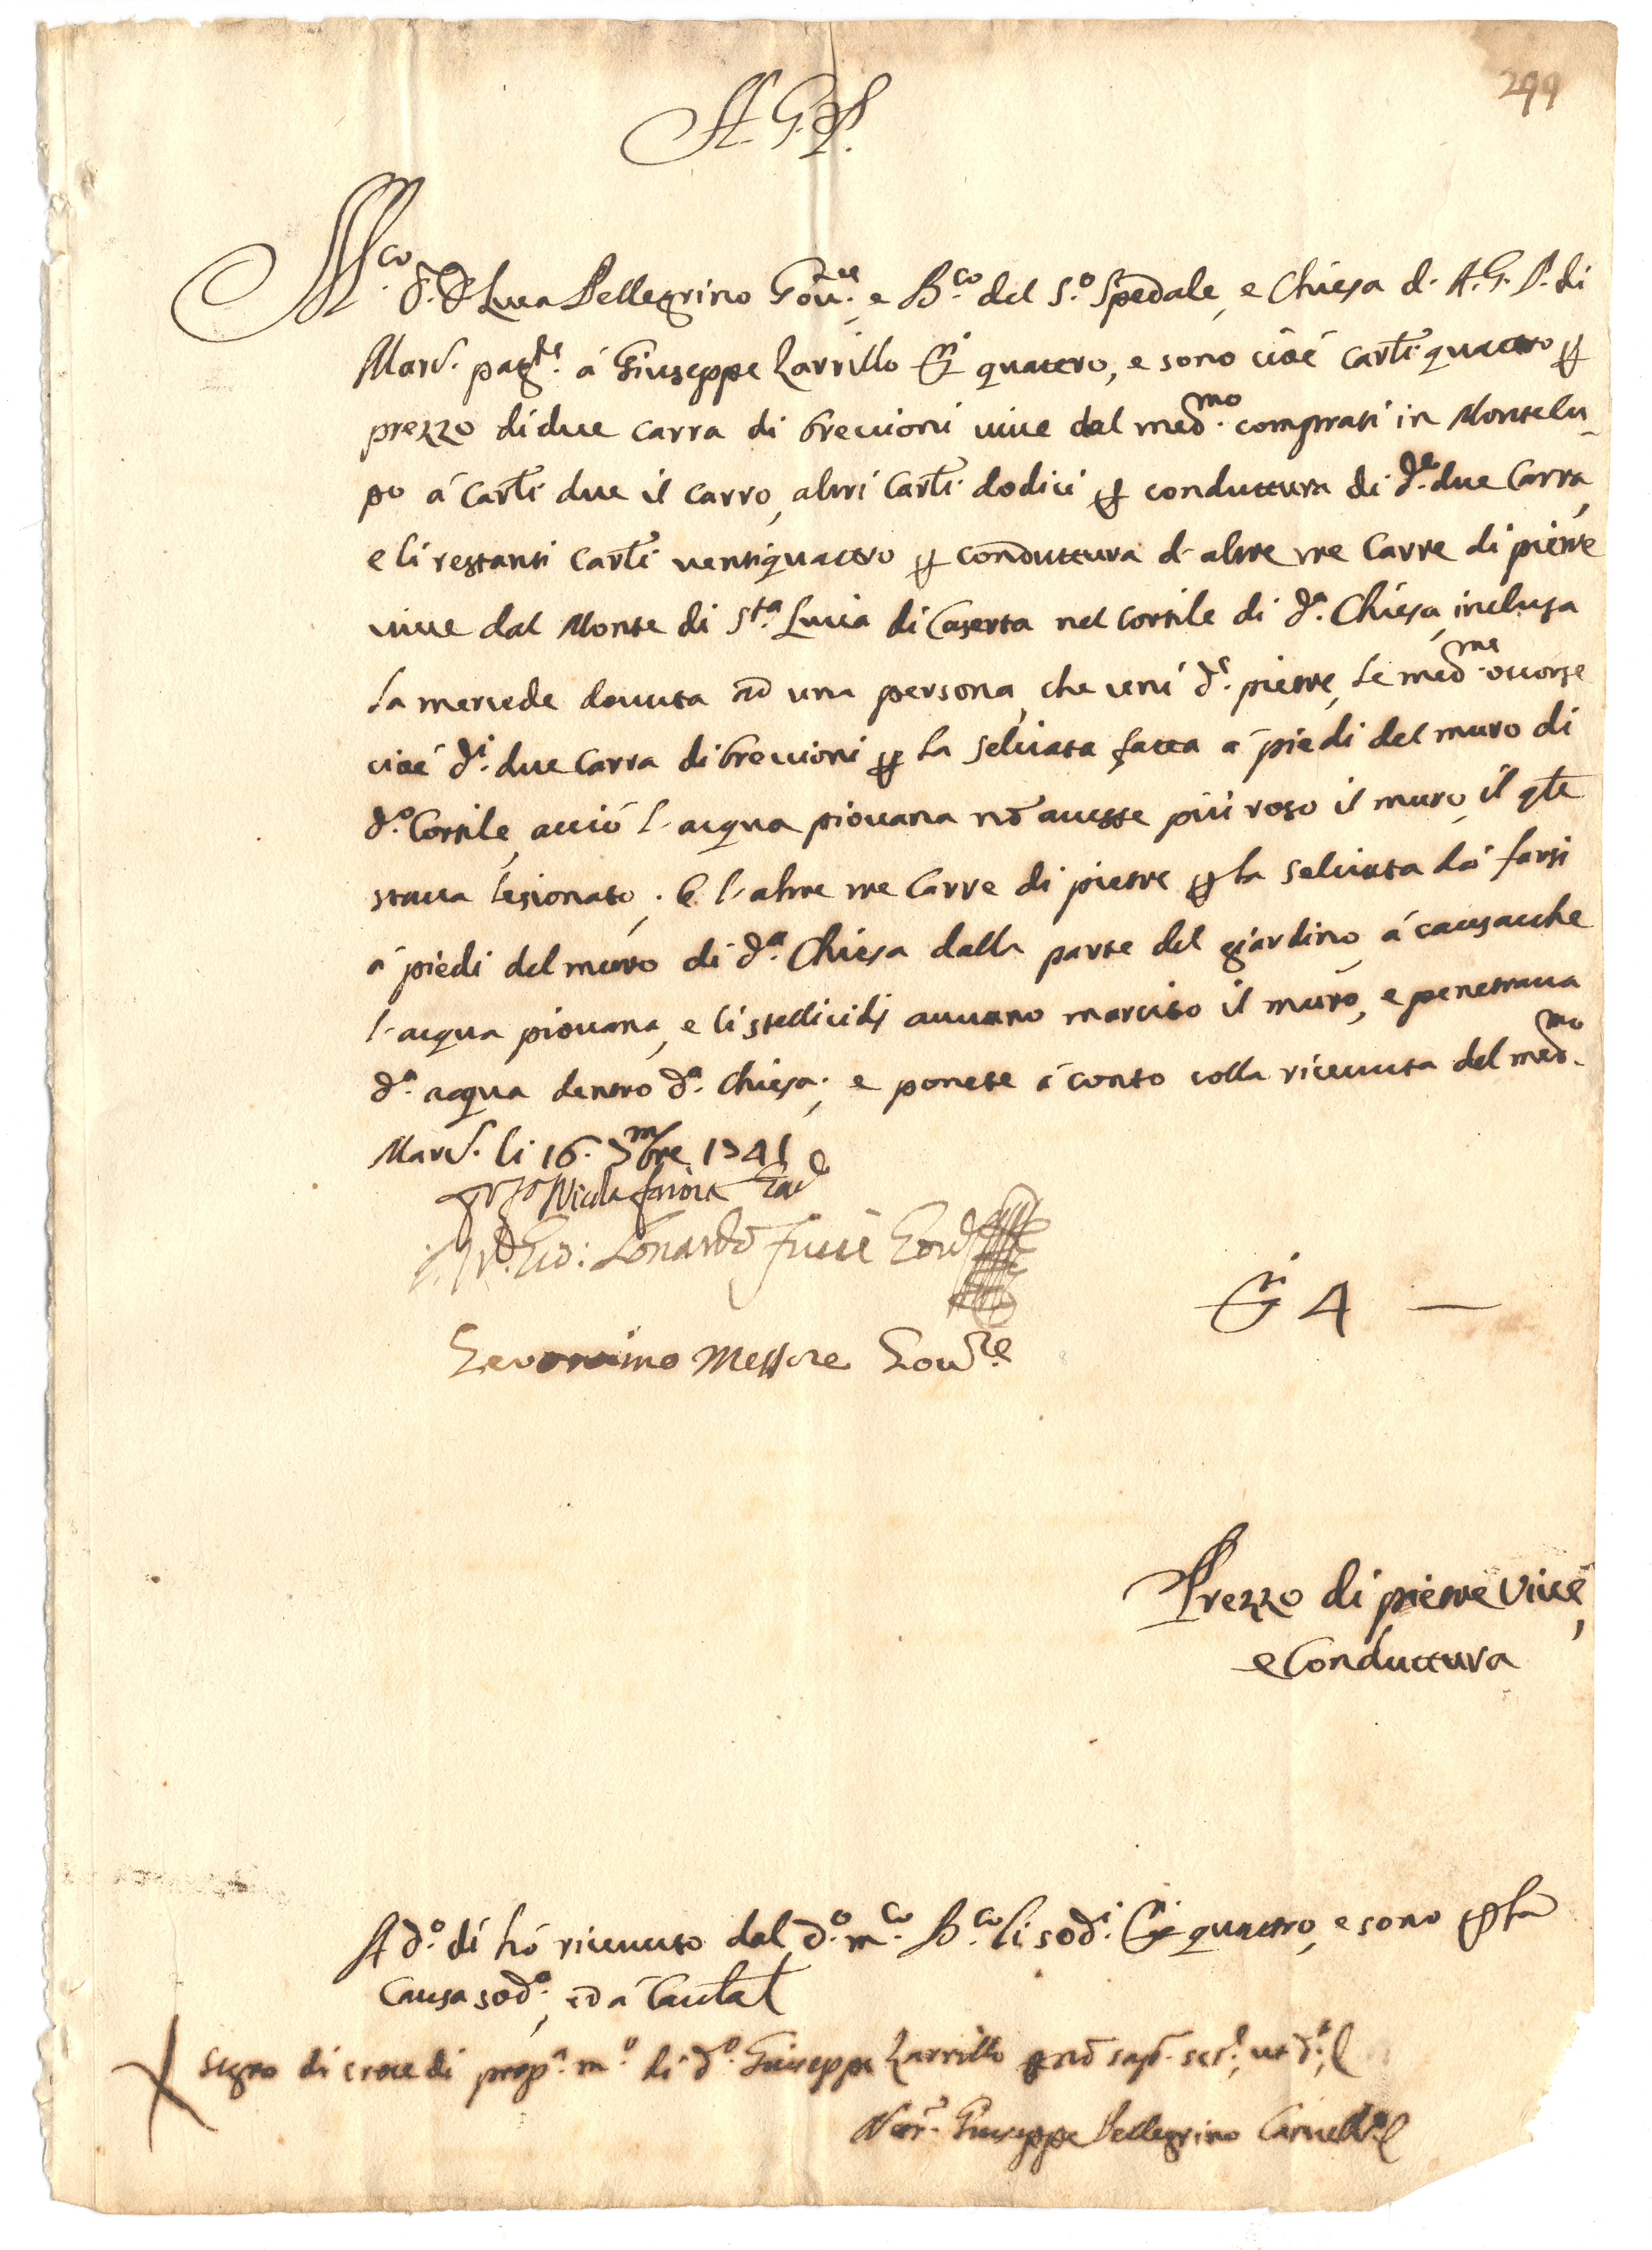 299
A. G. P.
M.co S.r D. Luca Pellegrino Gov.re, e B.co del S.o Spedale, e Chiesa d. A. G. P. di
Marc. pag.te á Giuseppe Zarrillo D.i quattro, e sono cioé Carl.i quattro p
prezzo di due carra di breccioni vive dal med.mo comprati in Montelu-
po á Carl.i due il carro, altri Carl.i dodici p conduttura di d.e due Carra,
e li restanti Carl.i ventiquattro p conduttura d'altre tre Carre di pietre
vive dal Monte di S.ta Lucia di Caserta nel Cortile di d.a Chiesa, inclusa
la mercede dovuta ad una persona, che cení d.e pietre, le med.me occorse
cioé d.i due Carra di breccioni p la selciata fatta a' piedi del muro di
d.o Cortile, acció l'acqua piovana nō avesse piú roso il muro, il qle
stava lesionato; E l'altre tre Carre di pietre p la selciata dá farsi
a' piedi del muro di d.a Chiesa dalla parte del giardino, á causacche
l'acqua piovana, e li stellicidj avevano marcito il muro, e penetrava
d.a acqua dentro d.a Chiesa; e ponete á conto colla ricevuta del med.mo
Marc. li 16. Xmbre 1741
Nicola Gov.e
Gio: Lonardo Fucci Gov.
Geronimo Messore Gov.re
D.i 4 —
Prezzo di pietre vive,
e Conduttura
A d.o dí hó ricevuto dal d.o m.co B.co li sod.i D.i quattro, e sono p la
Causa sod.a, ed á Cautel
X Segno di croce di prop.a m.o di d.o Giuseppe Zarrillo p nō sap. scr.e, ut d.t
Not.r Giuseppe Pellegrino Cancell.e